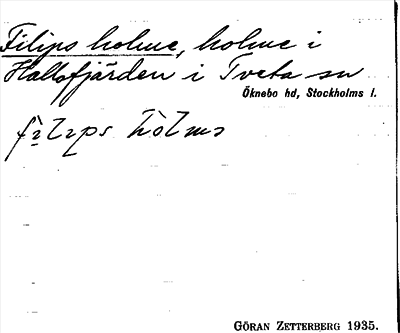 Filips holme, holme i
Hallsfjärden i Tveta sn
Öknebo hd, Stockholms l.
GÖRAN ZETTERBERG 1935.